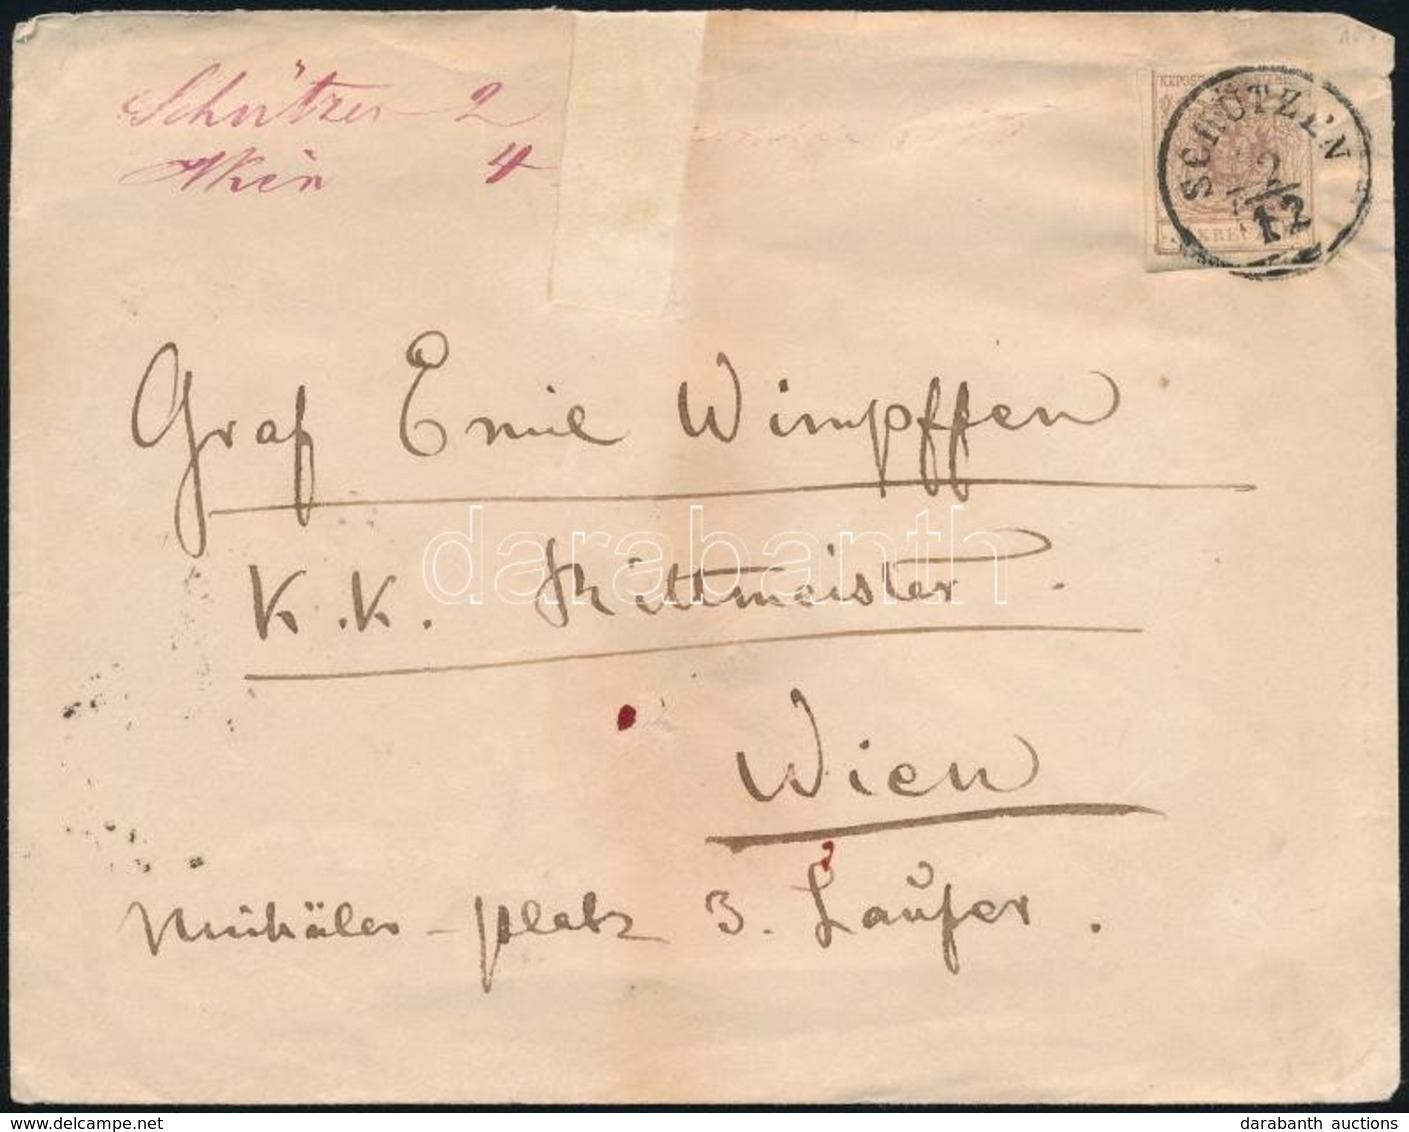 Schützen 2
Wien 4
SCHÜTZEN
2/12
KREUZER
Graf Emil Wimpffen
K.K. Rittmeister.
Wien
Michäler-platz 3. Läufer.
darabanth
www.delcampe.net
darabanth auctions